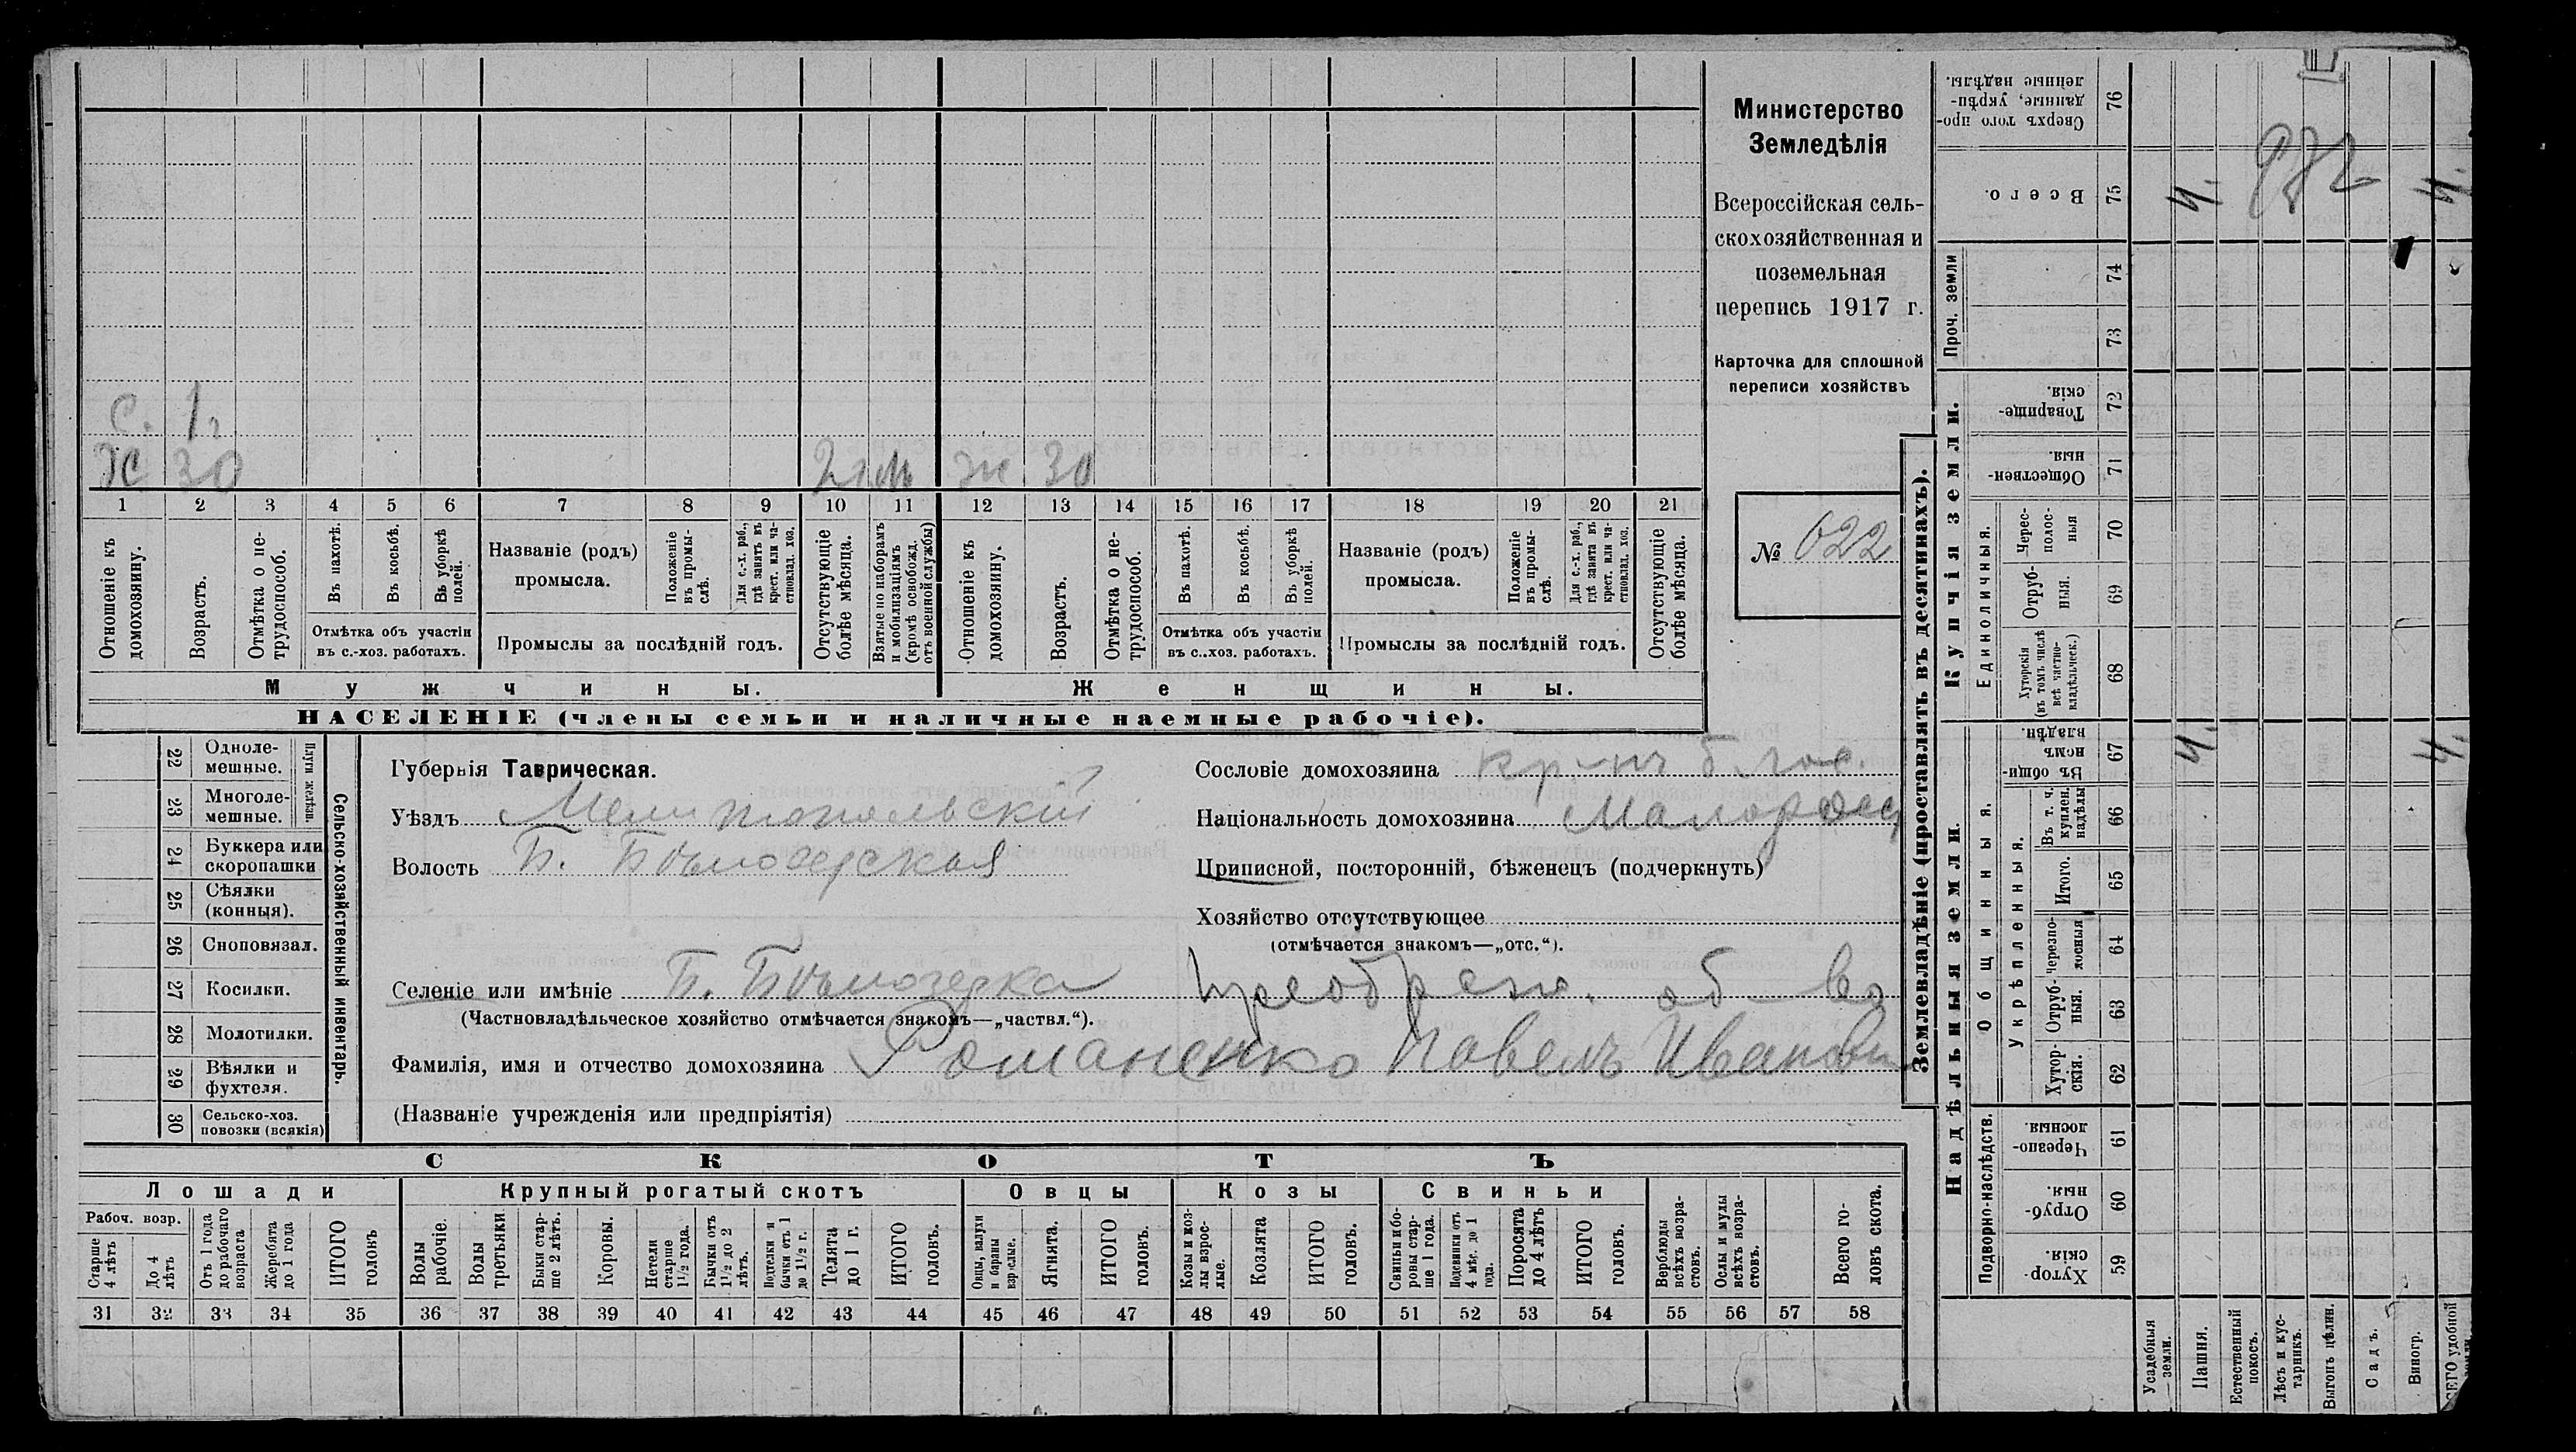 С. 1 г
Х 30 2 г м ж 30
1 2 3 4 5 6 7 8 9 10 11 12 13 14 15 16 17 18 19 20 21
Отношеніе къ домохозяину.
Возрастъ.
Отмѣтка о нетрудоспособ.
Въ пахотѣ.
Въ косьбѣ.
Въ уборкѣ полей.
Отмѣтка объ участіи
въ с.-хоз. работахъ.
Названіе (родъ)
промысла.
Положеніе въ промыслѣ.
Для с.-х. раб., гдѣ занятъ въ крест. или частновлад. хоз.
Промыслы за послѣдній годъ.
Отсутствующіе болѣе мѣсяца.
Взятые по наборамъ и мобилизаціямъ (кромѣ освобожд. отъ военной службы)
Отношеніе къ домохозяину.
Возрастъ.
Отмѣтка о нетрудоспособ.
Въ пахотѣ.
Въ косьбѣ.
Въ уборкѣ полей.
Отмѣтка объ участіи
въ с..хоз. работахъ.
Названіе (родъ)
промысла.
Положеніе въ промыслѣ.
Для с.-х. раб., гдѣ занята въ крест. или частновлад. хоз.
Промыслы за послѣдній годъ.
Отсутствующіе болѣе мѣсяца.
Мужчины. Женщины.
НАСЕЛЕНІЕ (члены семьи и наличные наемные рабочіе).
Министерство
Земледѣлія
Всероссійская сель-
скохозяйственная и
поземельная
перепись 1917 г.
Карточка для сплошной
переписи хозяйствъ
№ 622
22 Одноле-
мешные.
23 Многоле-
мешные.
Плуги желѣзн.
24 Буккера или
скоропашки
25 Сѣялки
(конныя).
26 Сноповязал.
27 Косилки.
28 Молотилки.
29 Вѣялки и
фухтеля.
30 Сельско-хоз.
повозки (всякія)
Сельско-хозяйственный инвентарь.
Губернія Таврическая.
Уѣздъ Мелитопольскій
Волость Б. Бѣлозерская
Селеніе или имѣніе Б. Бѣлозерка Преображ. об-во
(Частновладѣльческое хозяйство отмѣчается знакомъ—„частвл.“).
Фамилія, имя и отчество домохозяина Романенко Павелъ Иванов
(Названіе учрежденія или предпріятія)
Сословіе домохозяина кр-нъ б. гос.
Національность домохозяина Малоросс
Приписной, посторонній, бѣженецъ (подчеркнуть)
Хозяйство отсутствующее
(отмѣчается знакомъ—„отс.“).
СКОТЪ
Лошади Крупный рогатый скотъ Овцы Козы Свиньи
Рабоч. возр.
Старше 4 лѣтъ
До 4 лѣтъ
Отъ 1 года до рабочаго возраста
Жеребята до 1 года
ИТОГО головъ
Волы рабочіе.
Волы третьяки
Быки старше 2 лѣтъ.
Коровы.
Нетели старше 1½ года.
Бычки отъ 1½ до 2 лѣтъ.
Подтелки и бычки отъ 1 до 1½ г.
Телята до 1 г.
ИТОГО головъ.
Овцы, валухи и бараны взрослые.
Ягнята.
ИТОГО головъ.
Козы и козлы взрослые.
Козлята
ИТОГО головъ.
Свиньи боровы старше 1 года.
Подсвинки отъ 4 мѣс. до 1 года.
Поросята до 4 лѣтъ
ИТОГО головъ.
Верблюды всѣхъ возрастовъ.
Ослы и мулы всѣхъ возрастовъ.
Всего головъ скота.
31 32 33 34 35 36 37 38 39 40 41 42 43 44 45 46 47 48 49 50 51 52 53 54 55 56 57 58
Землевладѣніе (проставлять въ десятинахъ).
Купчія земли.
Надѣльныя земли.
Сверхъ того проданные, укрѣпленные надѣлы. 76
Всего. 75
Проч. земли 74 73
Товарищескія. 72
Общественныя. 71
Единоличныя.
Черес-полосныя 70
Отрубныя. 69
Хуторскія (въ томъ числѣ всѣ частновладѣльческ.) 68
Общинныя.
Въ общинномъ владѣн. 67
Укрѣпленныя.
Въ т. ч. куплен. надѣлы 66
Итого. 65
Черезполосныя 64
Отрубныя. 63
Хуторскія. 62
Подворно-наслѣдств.
Черезполосныя 61
Отрубныя. 60
Хуторскія. 59
Усадебныя земли.
Пашня.
Естественный покосъ.
Лѣсъ и кустарникъ.
Выгонъ цѣлин.
Садъ.
Виногр.
4. 4.
4. 4.